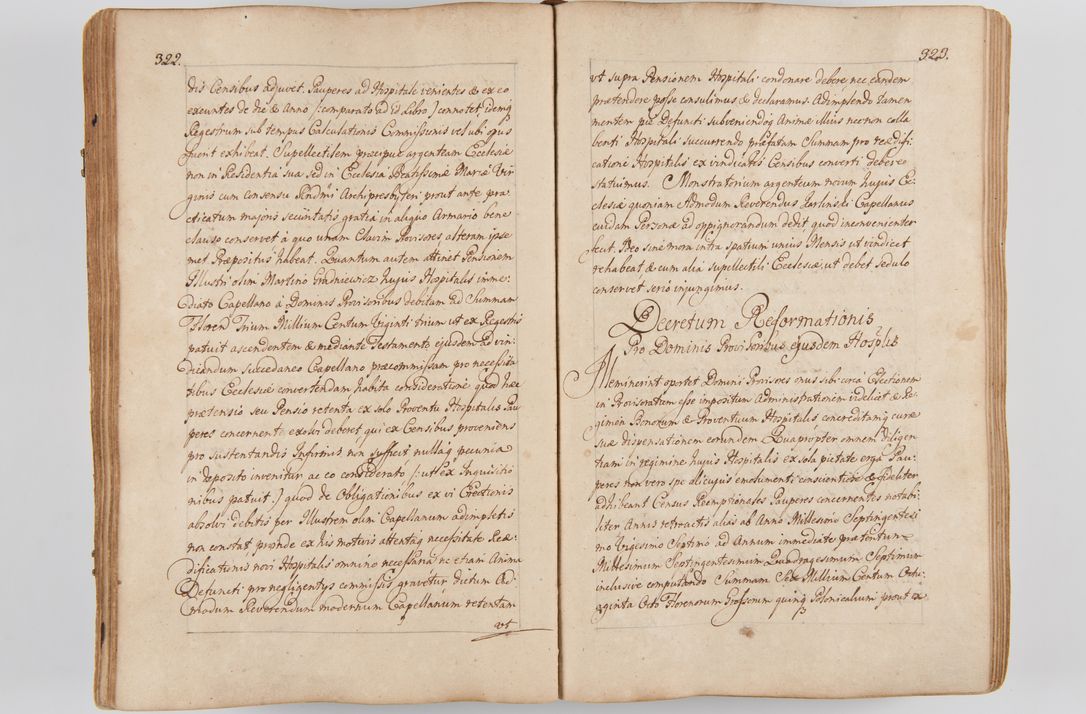 322.
dis Censibus adjuvet. Pauperes ad Hospitale venientes & ex eo
exeuntes de die & Anno /:comparato ad id Libro:/ connotet, idemq
Regestrum sub tempus Calculationis Commissionis vel ubi opus
fuerit exhibeat. Supellectilem præcipue argenteam Ecclesiæ
non in Residentia sua sed in Ecclesia Beatissimæ Mariæ Vir
ginis cum consensu Rndmi Archipresbyteri prout ante pra
cticatum majoris securitatis gratia in aliquo Armario bene
clauso conservet à quo unam Clavim Provisores alteram ipse
met Præpositus habeat. Quantum autem attinet Pensionem
Illustri olim Martino Gradniewicz hujus Hospitalis imme-
diato Capellano à Dominis Provisoribus debitam ad Summam
Floren: Trium Millium Centum Viginti trium ut ex Regestris
patuit ascendentem & mediante Testamento ejusdem ad vin-
dicandum succedaneo Capellano præcommissam pro necessita
tibus Ecclesiæ convertendam habita consideratione quod hæc
prætensio seu Pensio retenta ex solo Proventu Hospitalis Pau
peres concernente exolvi deberet qui ex Censibus proveniens
pro sustentandis Infirmis non sufficit nullaq pecunia
in deposito invenitur ac eo considerato /:ut ex Inquisitio
nibus patuit:/ quod de Obligationibus ex vi Erectionis
absolvi debitis per Illustrem olim Capellanum adimpletis
non constat proinde ex his motivis attentaq necessitate Reæ-
dificationis novi Hospitalis omnino necessaria ne etiam Anima
Defuncti pro negligentiis commissis gravetur dictum Ad-
modum Reverendum modernum Capellanum retentam
ut
323.
ut supra Pensionem Hospitali condonare debere, nec eandem
prætendere posse consulimus & declaramus. Adimplendo tamen
mentem piè Defuncti subveniendoq Animæ illius necnon colla
benti Hospitali succurrendo præfatam Summam pro reædifi-
catione Hospitalis ex vindicatis Censibus converti debere
statuimus. Monstratorium argenteum novum hujus Ec-
clesiæ quoniam Admodum Reverendus Jarlinski Capellanus
cuidam Personæ ad oppignorandum dedit quod inconvenienter
fecit. Ideo sine mora intra spatium unius Mensis ut vindicet
rehabeat, & cum alia supellectili Ecclesiæ, ut debet sedulo
conservet serio injungimus.
Decretum Reformationis
Pro Dominis Provisoribus ejusdem Hosplis
Meminerint oportet Domini Provisores onus sibi circa Electionem
in Provisoratum esse impositum Administrationem videlicet & Re-
gimen Bonorum & Proventuum Hospitalis concreditamq curæ
suæ dispensationem eorundem Quapropter omnem diligen
tiam in regimine hujus Hospitalis ex sola pietate erga Pau-
peres non vero spe alicujus emolumenti conscientiose & fideliter
adhibeant Census Reemptionales Pauperes concernentes notabi-
liter Annis retroactis alias ab Anno Millesimo Septingentesi
mo Vigesimo Septimo ad Annum immediate præteritum
Millesimum Septingentesimum Quadragesimum Septimum
inclusive computando Summam Sex Millium Centum Octu-
aginta Octo Florenorum Grossorum quinq Polonicalium prout ex